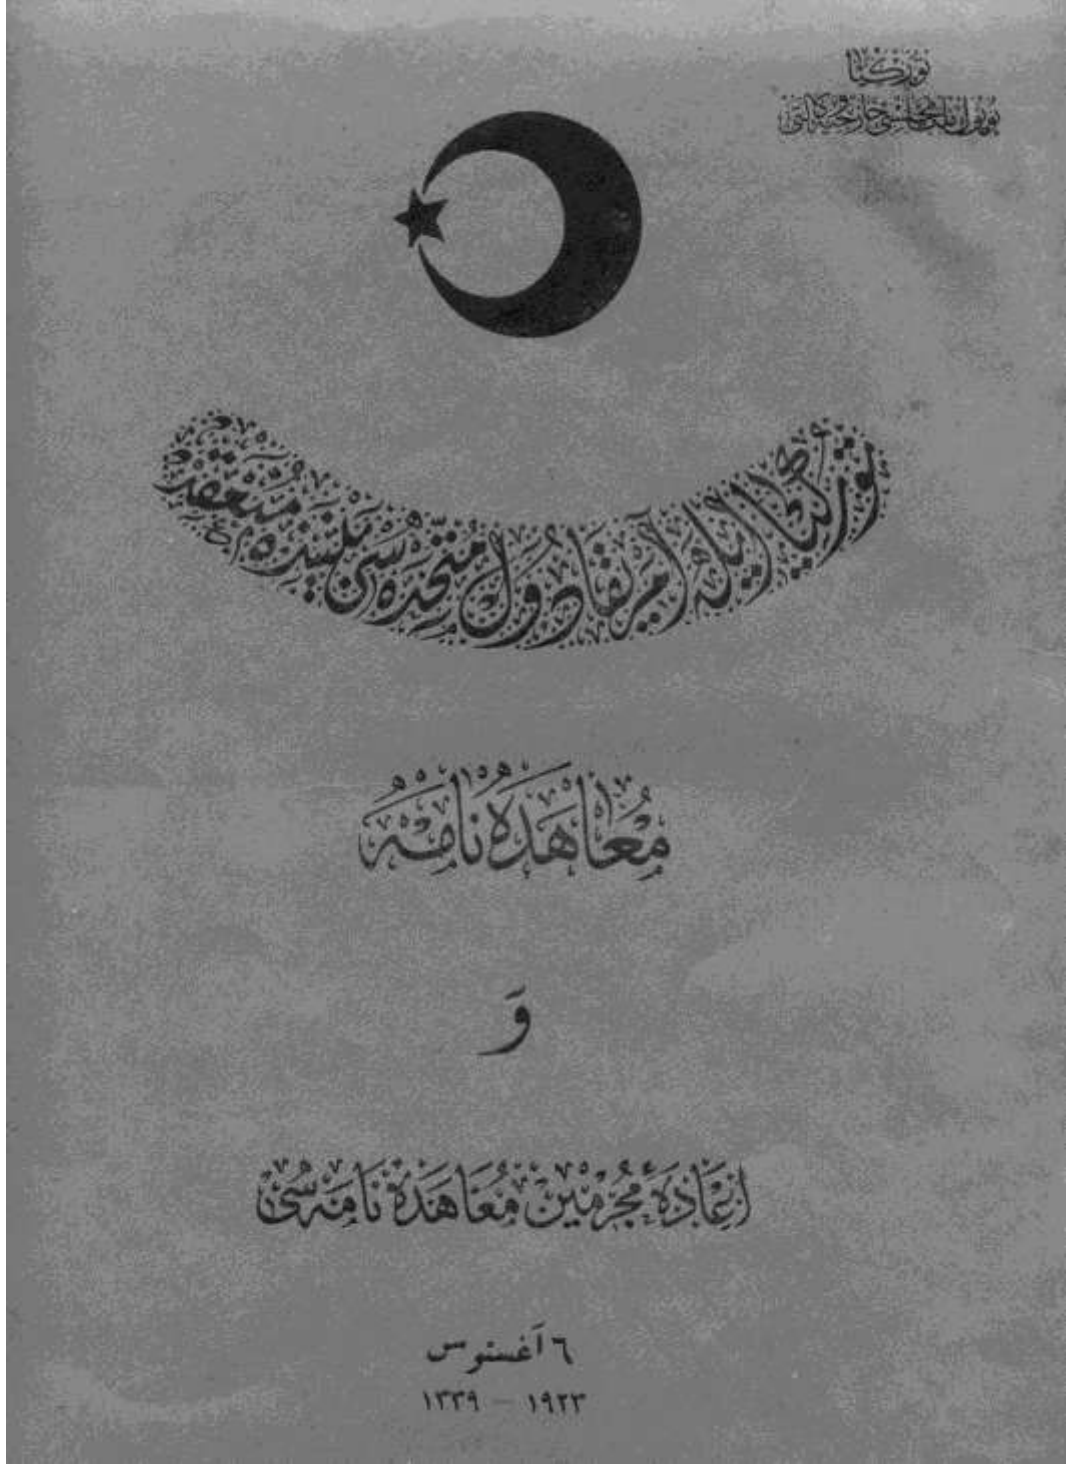 توركيا
بويوك ملت مجلسى خارجيه وكالتى
توركيا ايله آمريقا دول متحده سى بيننده منعقد
معاهده نامه
و
اعادهٔ مجرمين معاهده نامه سى
٦ آغستوس
١٩٢٣ — ١٣٣٩